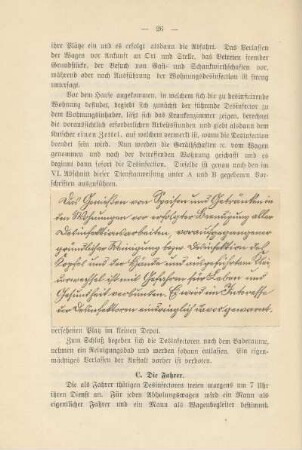 — 26 —
ihre Plätze ein und es erfolgt alsdann die Abfahrt. Das Verlassen
der Wagen vor Ankunft an Ort und Stelle, das Betreten fremder
Grundstücke, der Besuch von Gast- und Schankwirtschaften vor,
während oder nach Ausführung der Wohnungsdesinfektion ist streng
untersagt.
Vor dem Hause angekommen, in welchem sich die zu desinfizierende
Wohnung befindet, begiebt sich der führende Desinfektor zu
dem Wohnungsinhaber, läßt sich das Krankenzimmer zeigen, berechnet
die voraussichtlich erforderlichen Arbeitsstunden und giebt alsdann dem
Kutscher einen Zettel, auf welchem vermerkt ist, wann der Wagen
zurückkommen soll. Nun werden die Gerätschaften ꝛc. vom Wagen
genommen und nach der Wohnung gebracht und in dieser beginnt
hierauf die Desinfektion. Dieselbe ist genau nach den im
VI. Abschnitt dieser Dienstanweisung unter A und B gegebenen Vorschriften
auszuführen.
Das Genießen von Speisen und Getränken in
den Wohnungen vor erfolgter Beendigung aller
Desinfektionsarbeiten, vorausgegangener
gründlicher Reinigung bezw. Desinfektion des
Kopfes und der Hände und ausgeführtem
wechsel ist mit Gefahren für Leben und
Gesundheit verbunden. Es wird im Interesse
der Desinfektoren eindringlich davor gewarnt.
versehenen Platz im kleinen Depot.
Zum Schluß begeben sich die Desinfektoren nach dem Baderaum,
nehmen ein Reinigungsbad und werden sodann entlassen. Ein eigenmächtiges
Verlassen der Anstalt vorher ist verboten.
C. Die Fahrer.
Die als Fahrer thätigen Desinfektoren treten morgens um 7 Uhr
ihren Dienst an. Für jeden Abholungswagen wird ein Mann als
eigentlicher Fahrer und ein Mann als Wagenbegleiter bestimmt.